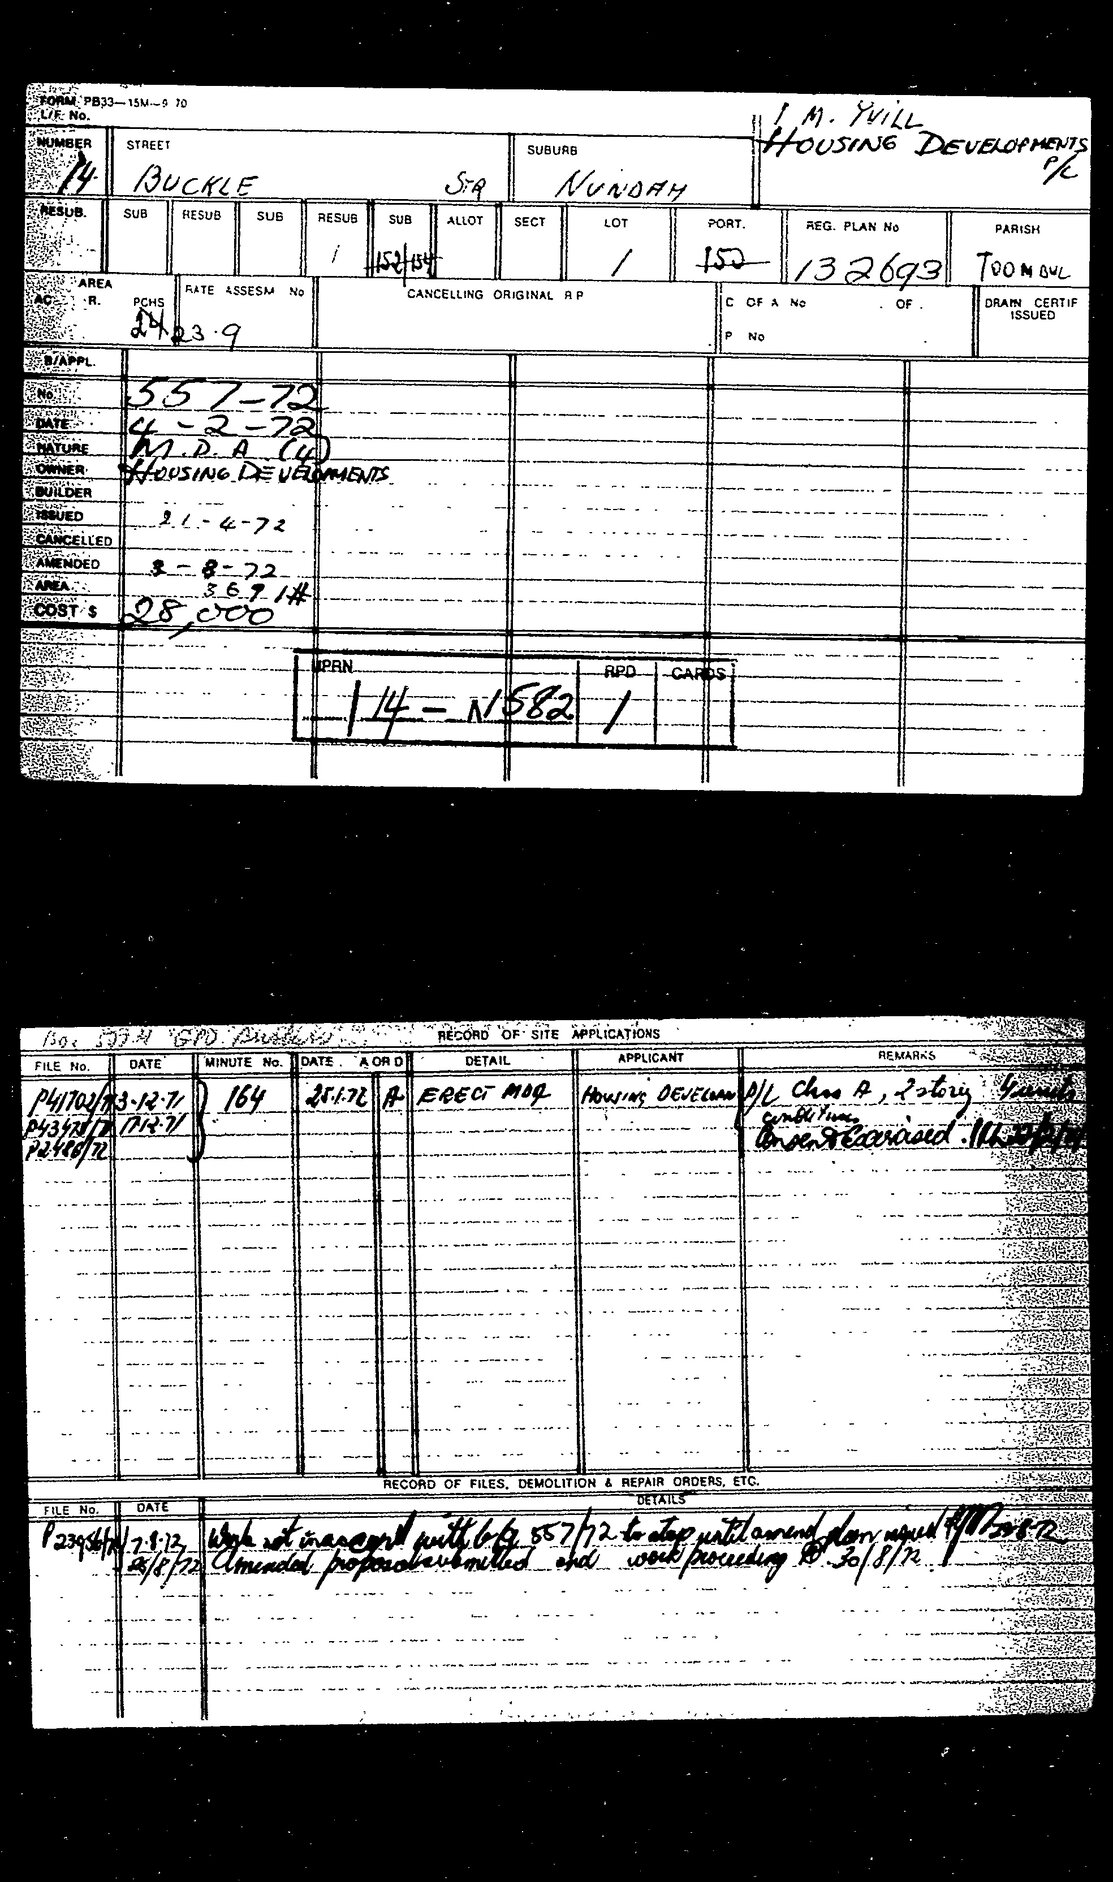 FORM PB33—15M—9 70
L/F No.
I M. YUILL
HOUSING DEVELOPMENTS
P/L
NUMBER STREET SUBURB
14 BUCKLE STR NUNDAH
RESUB. SUB RESUB SUB RESUB SUB ALLOT SECT LOT PORT. REG. PLAN No PARISH
1 152/154 1 152 132693 TOOMBUL
AREA RATE ASSESM No CANCELLING ORIGINAL R P C OF A No . OF . DRAIN CERTIF
AC R. PCHS ISSUED
24 23.9 P No
B/APPL.
No. 557-72
DATE 4-2-72
NATURE M.D.A (4)
OWNER HOUSING DEVELOPMENTS
BUILDER
ISSUED 21-4-72
CANCELLED
AMENDED 3-8-72
AREA 3691#
COST $ 28,000
UPRN RPD CARDS
114-N1582 1
Box GPO RECORD OF SITE APPLICATIONS
FILE No. DATE MINUTE No. DATE A OR D DETAIL APPLICANT REMARKS
P41702/71 3-12-71 164 25.1.72 A ERECT MDA HOUSING DEVELOPM P/L Class A, 2 story 4 units
P43478/71 17-12-71 conditions
P2486/72 Consent Exercised.
RECORD OF FILES, DEMOLITION & REPAIR ORDERS, ETC.
FILE No. DATE DETAILS
7-8-72 Work not in accord with 557/72 to stop until amend plan issued
25/8/72 Amended proposal submitted and work proceeding 30/8/72